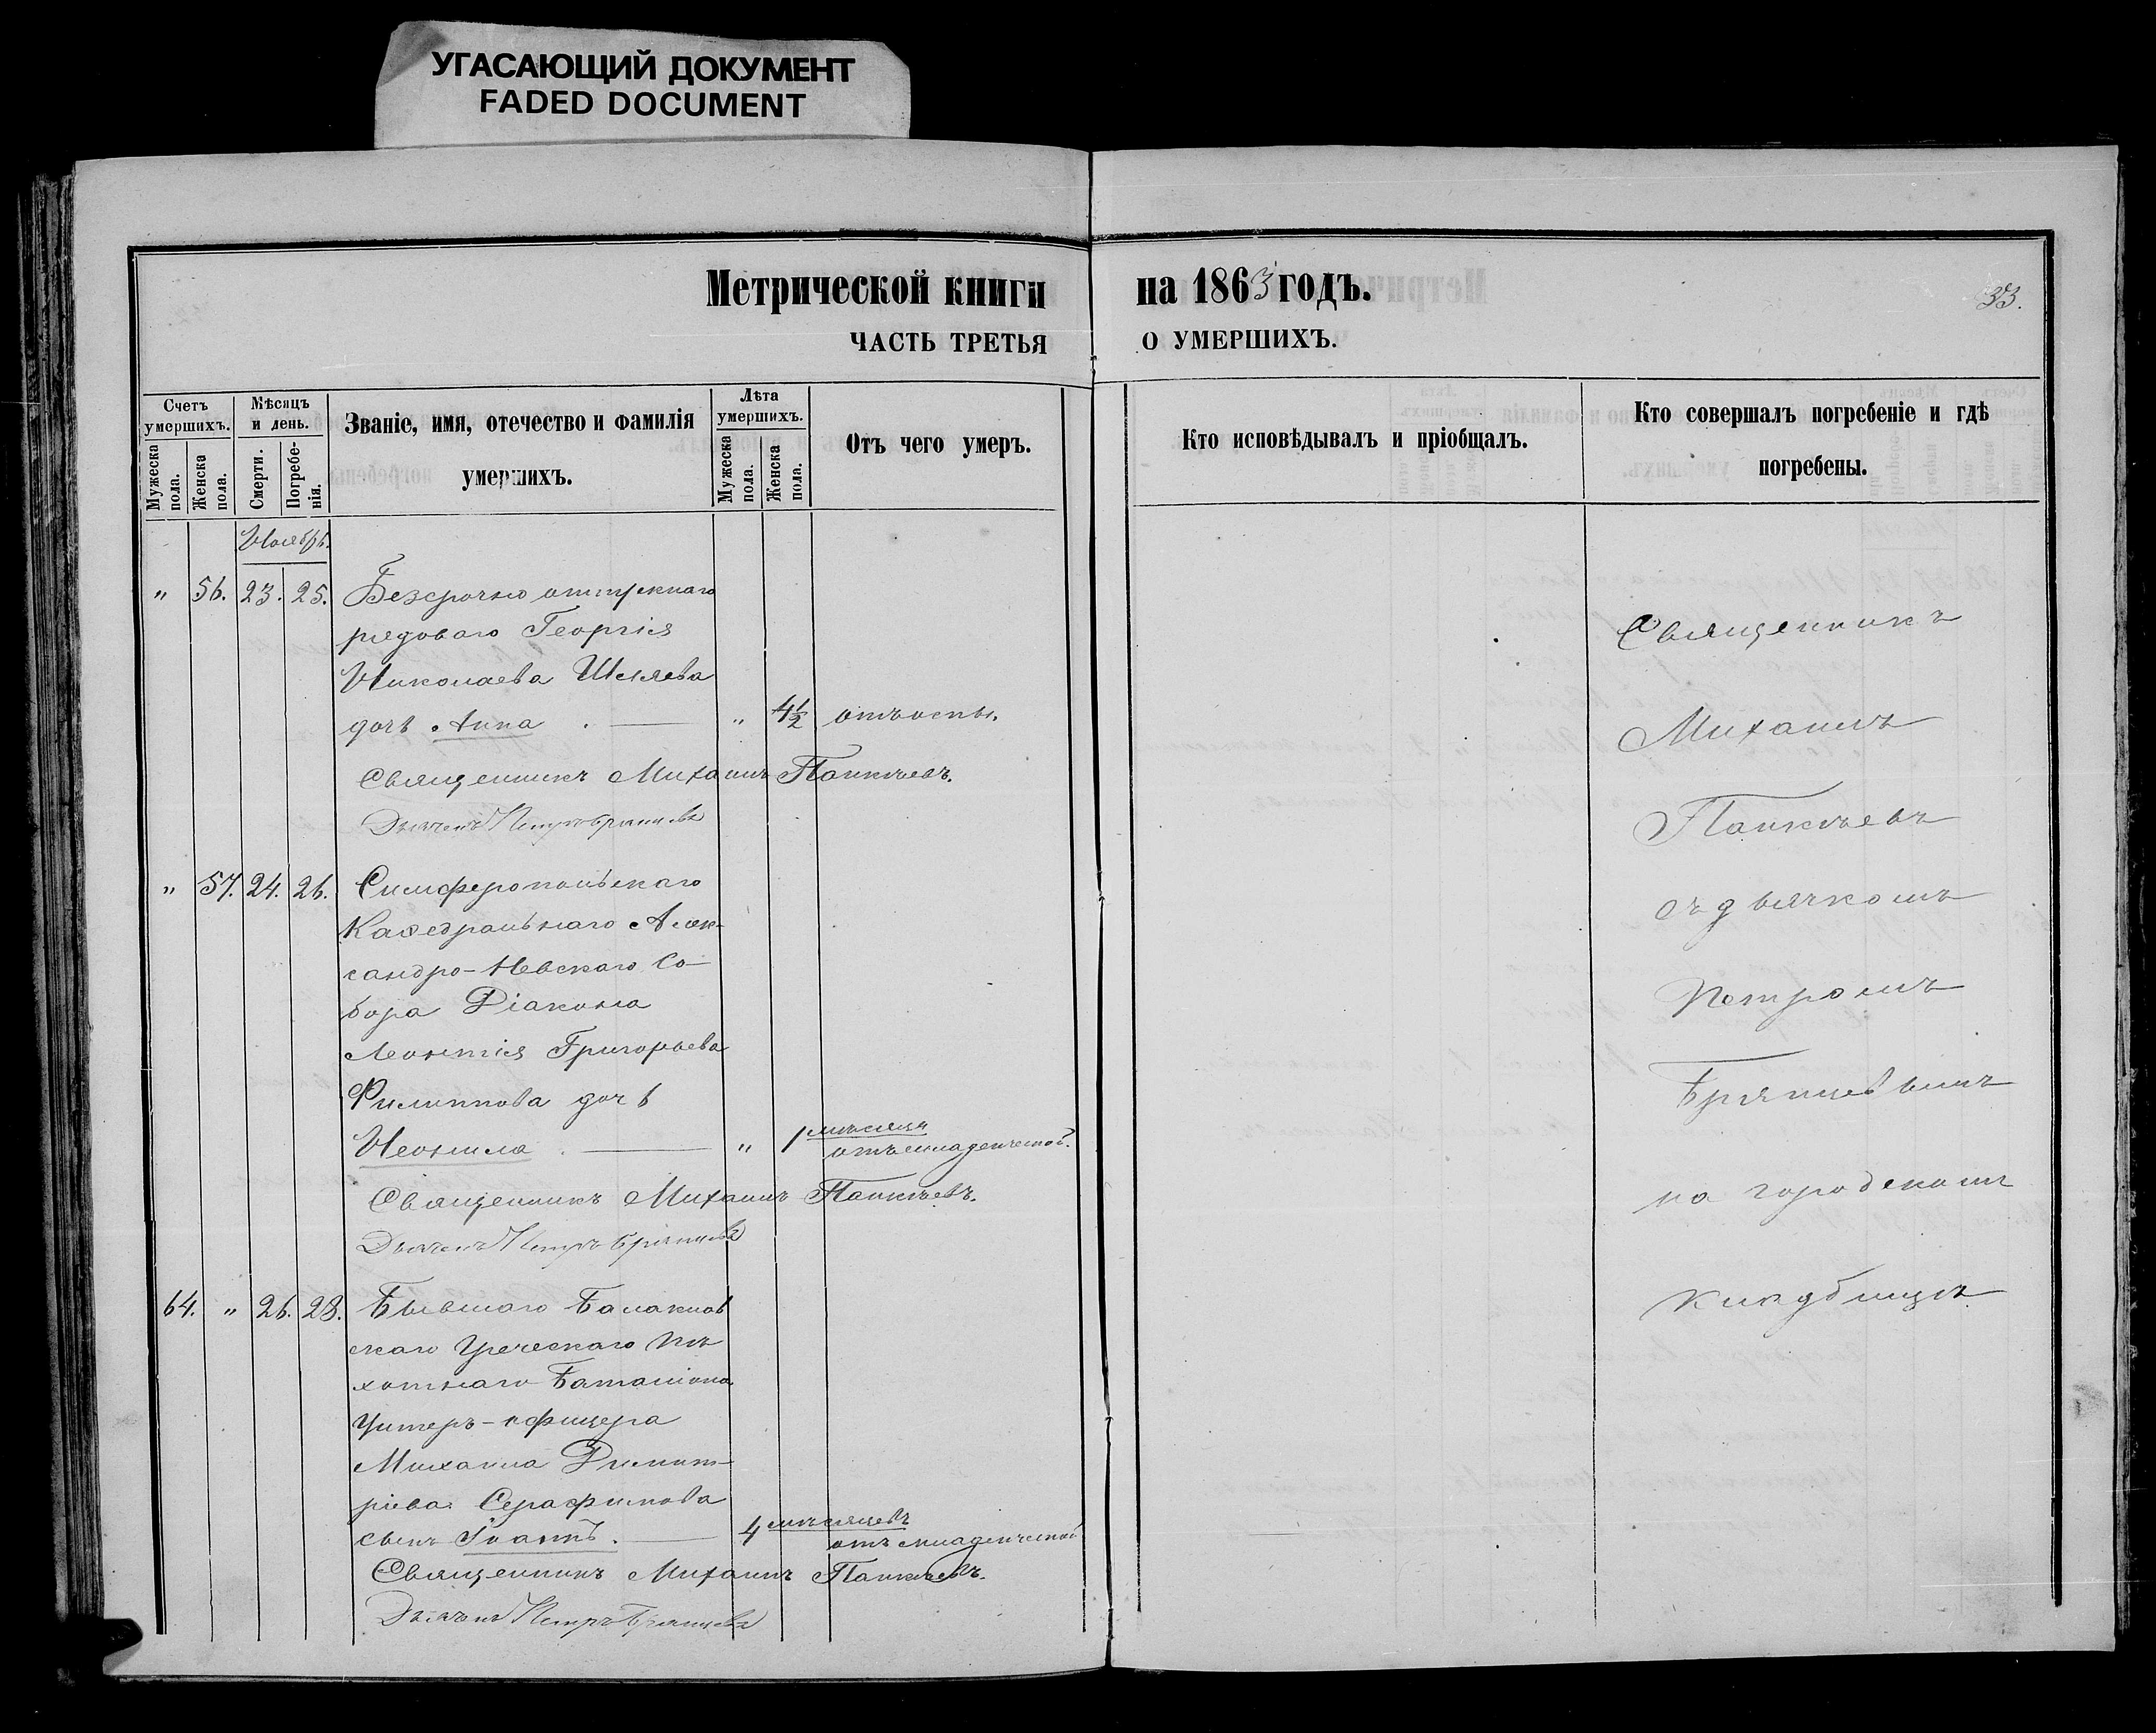 УГАСАЮЩИЙ ДОКУМЕНТ
FADED DOCUMENT
Метрической книги
ЧАСТЬ ТРЕТЬЯ
Счетъ умершихъ.
Мужеска пола.
Женска пола.
Мѣсяцъ и день.
Смерти.
Погребе-нія.
Званіе, имя, отечество и фамилія
умершихъ.
Лѣта умершихъ.
Мужеска пола.
Женска пола.
Отъ чего умеръ.
Ноябрь.
" 56. 23. 25. Безсрочно отпускнаго
рядоваго Георгія
Николаева Шляева
дочь Анна . — " 4½ отъ оспы.
Священникъ Михаилъ Панкѣевъ.
Дьячекъ Петръ Брянцевъ
" 57. 24. 26. Симферопольскаго
Каѳедральнаго Алек-
сандро-Невскаго Со-
бора Діакона
Леонтія Григорьева
Филиппова дочь
Неонила . — " 1 мѣсяца отъ младенческой.
Священникъ Михаилъ Панкѣевъ.
Дьячекъ Петръ Брянцевъ
64. " 26. 28. Бывшаго Балаклав
скаго Греческаго пѣ
хотнаго Баталіона
Унтеръ-офицера
Михаила Димит-
ріева Серафимова
сынъ Іоаннъ . — 4 мѣсяцевъ отъ младенческой
Священникъ Михаилъ Панкѣевъ.
Дьячекъ Петръ Брянцевъ
на 1863 годъ.
33.
О УМЕРШИХЪ.
Кто исповѣдывалъ и пріобщалъ.
Кто совершалъ погребеніе и гдѣ
погребены.
Священникъ
Михаилъ
Панкѣевъ
съ дьячкомъ
Петромъ
Брянцевымъ
на городскомъ
кладбищѣ.